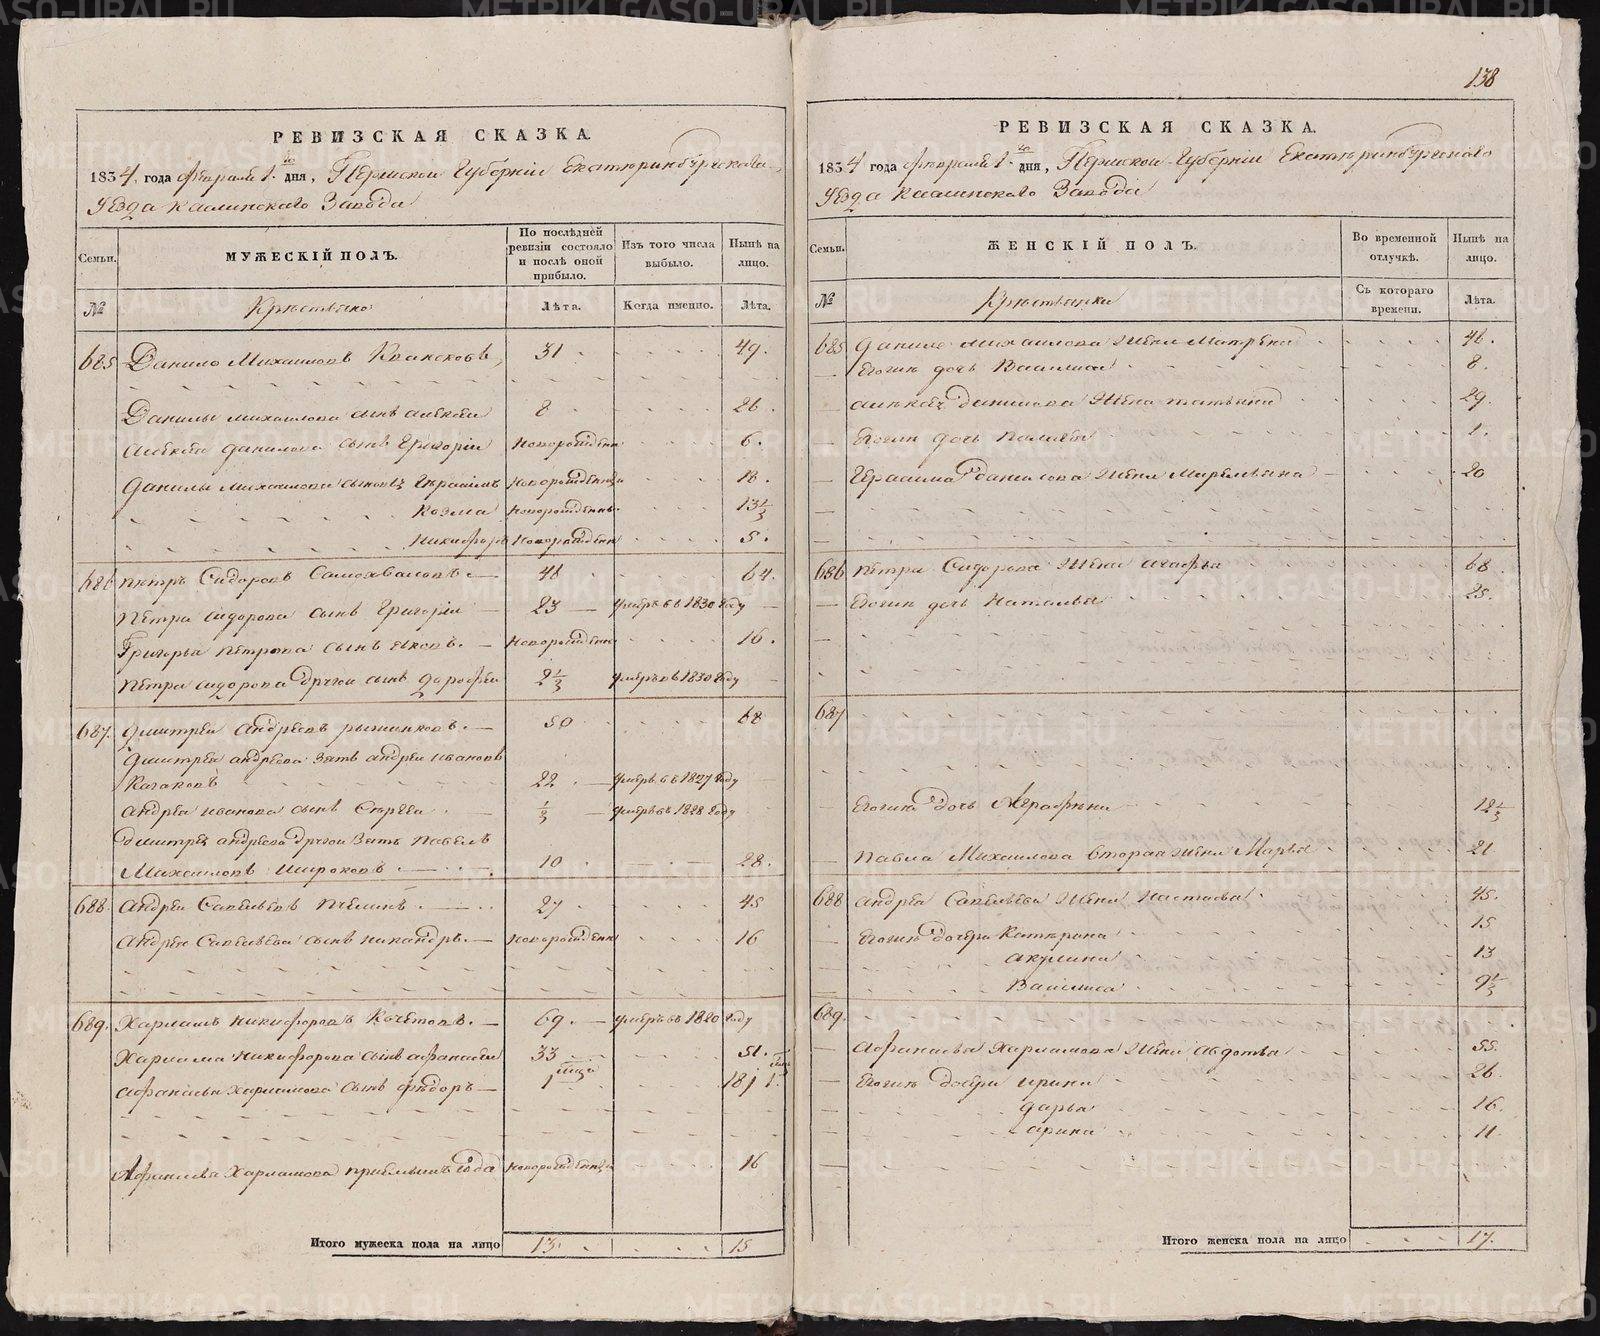 138
РЕВИЗСКАЯ СКАЗКА.
1834 года февраля 1го дня, Пермской Губернiи Екатеринбургскаго
Уезда Каслинскаго Завода
Семьи.
МУЖЕСКIЙ ПОЛЪ.
По послѣдней ревизiи состояло и послѣ оной прибыло.
Изъ того числа выбыло.
Нынѣ на лицо.
№
Крестьяно
Лѣта.
Когда именно.
Лѣта.
685 Данило Михаиловъ 31 49.
Данилы михаилова сынъ алексеи 8 26.
алексея данилова сынъ григореи новорожденн 6.
данилы михаилова сыновья герасимъ новорожденны 18.
Козма новорожденн. 13½
никифоръ новорожденн 5.
686 петръ Сидоровъ Самохваловъ. 48 64.
петра сидорова сынъ григореи 23 умеръ въ 1830 году
Григорья петрова сынъ яковъ. новорожденн 16.
петра сидорова другои сынъ дорофеи 2½ умеръ въ 1830 году
687. дмитреи андреевъ 50 68
дмитрея андреева зять андреи ивановъ
Казаковъ 22 умеръ въ 1827 году
андрея иванова сынъ Сергеи умеръ въ 1828 году
дмитрея андреева другои зять павелъ
Михаиловъ широковъ 10 28.
688. андреи Савельевъ пчелинъ. 27 45
андрея Савельева сынъ никандръ. новорожденн 16
689. Харламъ никифоровъ Кочетовъ. 69. умеръ въ 1820 году
Харлама никифорова сынъ афанасеи 33 51.
афанасья харламова сынъ федоръ 1811 1811.
Афанасья Харламова новорожденны 16
Итого мужеска пола на лицо 13. 15
РЕВИЗСКАЯ СКАЗКА.
1834 года февраля 1го дня, Пермской Губернiи Екатеринбургскаго
Уезда Каслинскаго Завода
Семьи.
ЖЕНСКIЙ ПОЛЪ.
Во временной отлучкѣ.
Нынѣ на лицо.
№
Крестьянки
Съ котораго времени.
Лѣта.
685 данила михаилова жена матрена 46.
Егожъ дочь Васлиса 8.
алексея данилова жена татьяна 29.
Егожъ дочь 1.
Герасима данилова жена Маремьяна 20
686 петра Сидорова жена агафья 68.
Егожъ дочь Наталья 25.
687
Егожъ дочь Аграфена 12½
павла Михаилова вторая жена Марья 21
688 андрея Савельева жена настасья 45.
Егожъ дочери Катерина 15
акулина 13
Васлиса 9½
689.
афанасья харламова жена авдотья 55.
Егожъ дочери ирина 26.
дарья 16.
арина 11.
Итого женска пола на лицо 17.